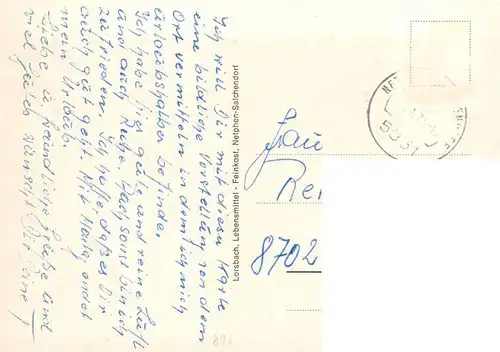 Ich will Dir mit diesen Karte
eine bildliche Vorstellung von dem
Ort vermitteln in dem ich mich
urlaubshalber befinde.
Ich habe hier gute und reine Luft
und auch Ruhe. Auch sonst bin ich
zufrieden. Ich hoffe daß es Dir
auch gut geht. Mit Heute endet
mein Urlaub.
Liebe u. freundliche Grüße und
viel wünscht Dir Deine
Lorsbach, Lebensmittel - Feinkost, Netphen-Salchendorf
NE
5931
Frau
8702
891